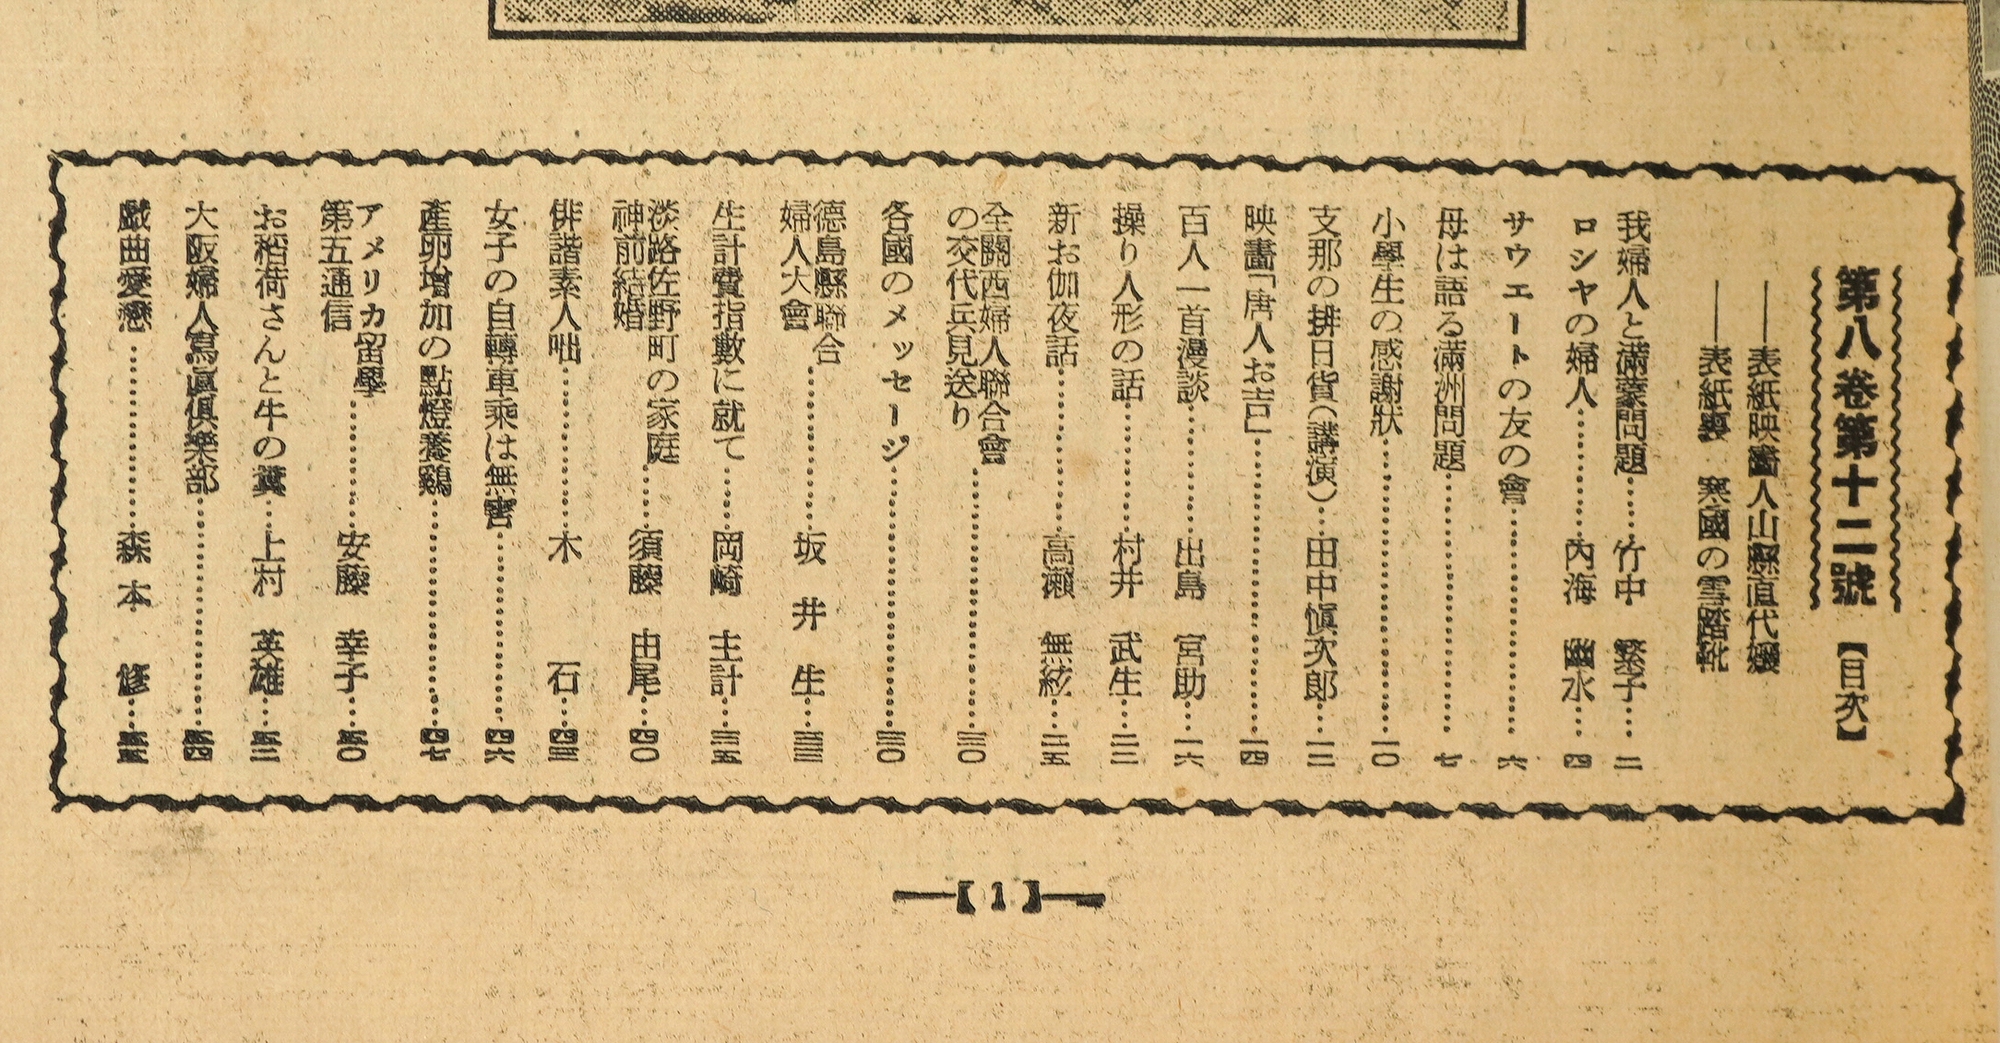 第八卷第十二號【目次】
――表紙映畵人山縣直代孃
――表紙裏 寒國の雪踏靴
我婦人と滿蒙問題……竹中 繁子……二
ロシヤの婦人……內海 幽水……四
サウエートの友の會……六
母は語る滿洲問題……七
小學生の感謝狀……一〇
支那の排日貨(講演)……田中愼次郎……一二
映畫「唐人お吉」……一四
百人一首漫談……出島 宮助……一六
操り人形の話……村井 武生……二二
新お伽夜話……高瀨 無絃……二五
全關西婦人聯合會
の交代兵見送り……三〇
各國のメッセージ……三〇
德島縣聯合
婦人大會……坂井生……三三
生計費指數に就て……岡崎 主計……三五
淡路佐野町の家庭
神前結婚……須藤 由尾……四〇
俳諧素人咄……木石……四三
女子の自轉車乘は無害……四六
產卵增加の點燈養鷄……四七
アメリカ留學
第五通信……安藤 幸子……五〇
お稻荷さんと牛の糞……上村 英雄……五二
大阪婦人寫眞俱樂部……五四
戲曲愛戀……森本 修……五五
【1】